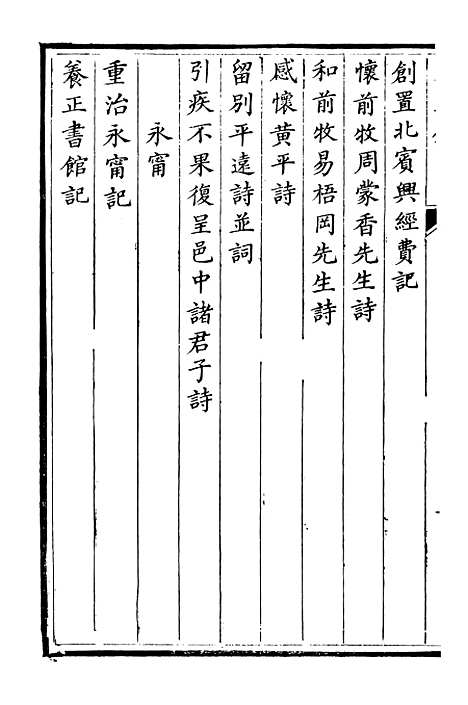 創置北賓興經費記
懷前牧周蒙香先生詩
和前牧易梧岡先生詩
感懷黃平詩
留別平遠詩並詞
引疾不果復呈邑中諸君子詩
永甯
重治永甯記
養正書館記